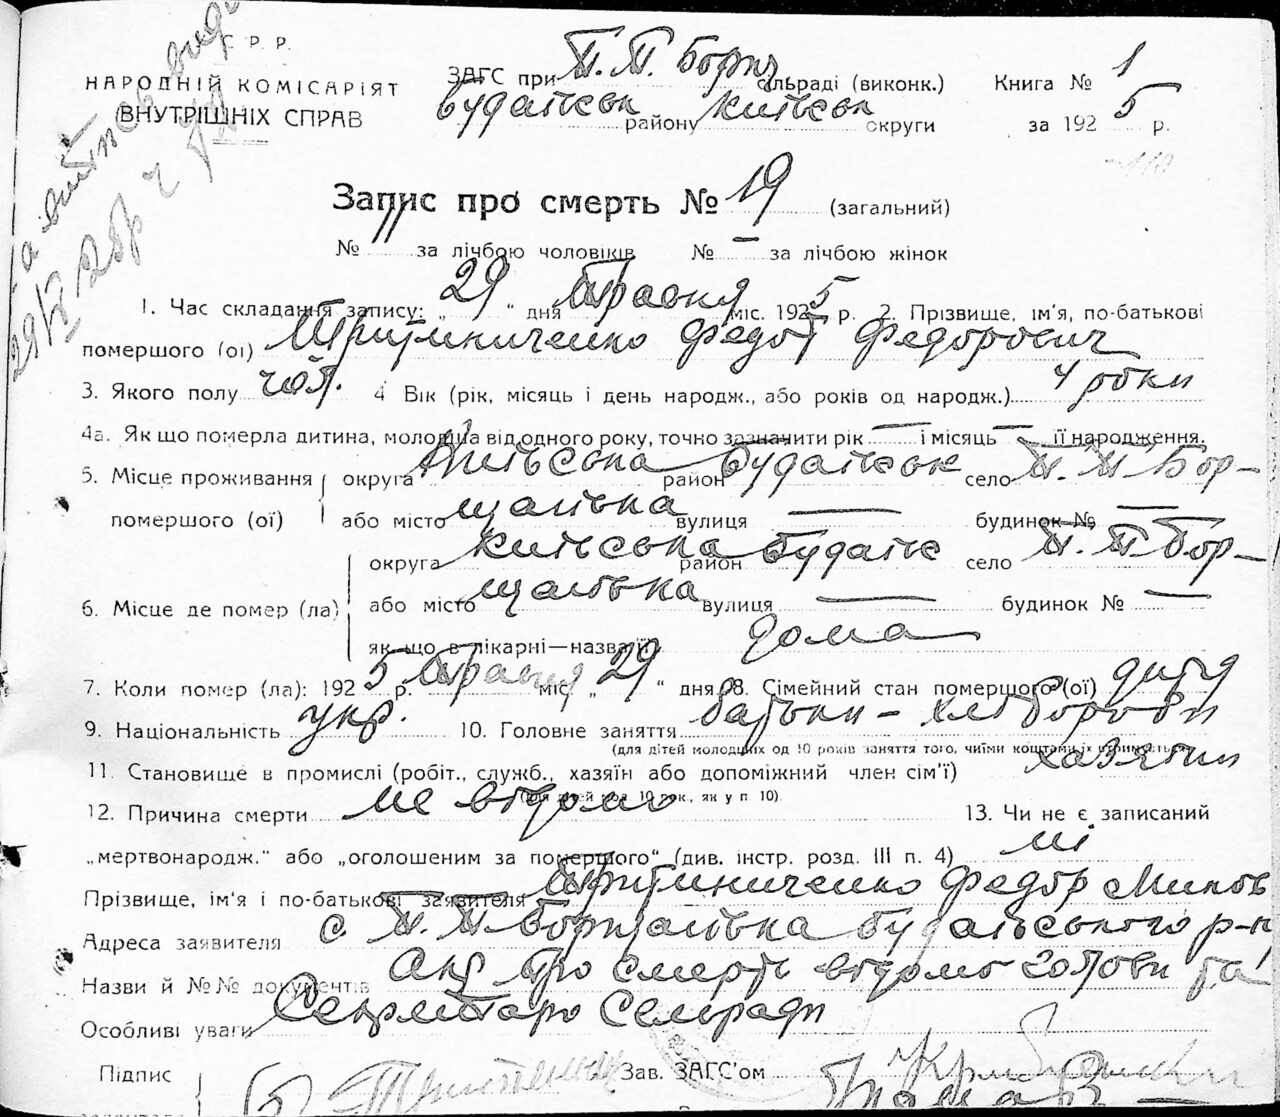 С. Р. Р.
НАРОДНІЙ КОМІСАРІЯТ
ВНУТРІШНІХ СПРАВ
ЗАГС при П. П. Борщ сільраді (виконк.) Книга № 1
Будаївськ району Київськ округи за 1925 р.
Запис про смерть № 19 (загальний)
№ 11 за лічбою чоловіків № — за лічбою жінок
1. Час складання запису: „29“ дня Травня міс. 1925 р. 2. Прізвище, ім'я, по-батькові
помершого (ої) Федот Федорович
3. Якого полу чол. 4 Вік (рік, місяць і день народж., або років од народж.) 4 роки
4а. Як що померла дитина, молодша від одного року, точно зазначити рік — і місяць — її народження.
5. Місце проживання округа Київська район Будаївськ село П. П. Бор-
помершого (ої) або місто щагівка вулиця — будинок № —
округа Київська район Будаївс село П. П Бор-
6. Місце де помер (ла) або місто щагівка вулиця — будинок № —
як що в лікарні—назва її дома
7. Коли помер (ла): 1925 р. Травня міс. „29“ дня 8. Сімейний стан помершого (ої) дитя
9. Національність укр. 10. Головне заняття батьки - хлібороби
(для дітей молодших од 10 років заняття того, чиїми коштами їх отримується)
11. Становище в промислі (робіт., служб., хазяїн або допоміжний член сім'ї) хазяїни
(для дітей мол. 10 рок., як у п. 10).
12. Причина смерти не відомо 13. Чи не є записаний
„мертвонародж.“ або „оголошеним за помершого“ (див. інстр. розд. III п. 4) ні
Прізвище, ім'я і по-батькові заявителя Федор
Адреса заявителя с. П. П. Борщагівка Будаївського р-н
Назви й №№ документів Акт про смерть відомо голови та
Особливі уваги Секретарю Сельради
Підпис Зав. ЗАГС'ом
заявителя